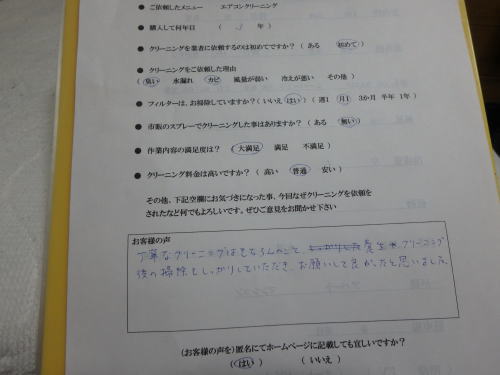 ● ご依頼したメニュー エアコンクリーニング
● 購入して何年目 ( 3 年 )
● クリーニングを業者に依頼するのは初めてですか? ( ある 初めて )
● クリーニングをご依頼した理由
( 臭い 水漏れ カビ 風量が弱い 冷えが悪い その他 )
● フィルターは、お掃除していますか? ( いいえ はい ) ( 週1 月1 3か月 半年 1年 )
● 市販のスプレーでクリーニングした事はありますか? ( ある 無い )
● 作業内容の満足度は? ( 大満足 満足 不満足 )
● クリーニング料金は高いですか? ( 高い 普通 安い )
その他、下記空欄にお気づきになった事、今回なぜクリーニングを依頼を
されたなど何でもよろしいです。ぜひご意見をお聞かせ下さい
お客様の声
丁寧なクリーニングはもちろんのこと、養生やクリーニング
後の掃除もしっかりしていただき、お願いして良かったと思いました。
(お客様の声を)匿名にてホームページに記載しても宜しいですか?
( はい ) ( いいえ )